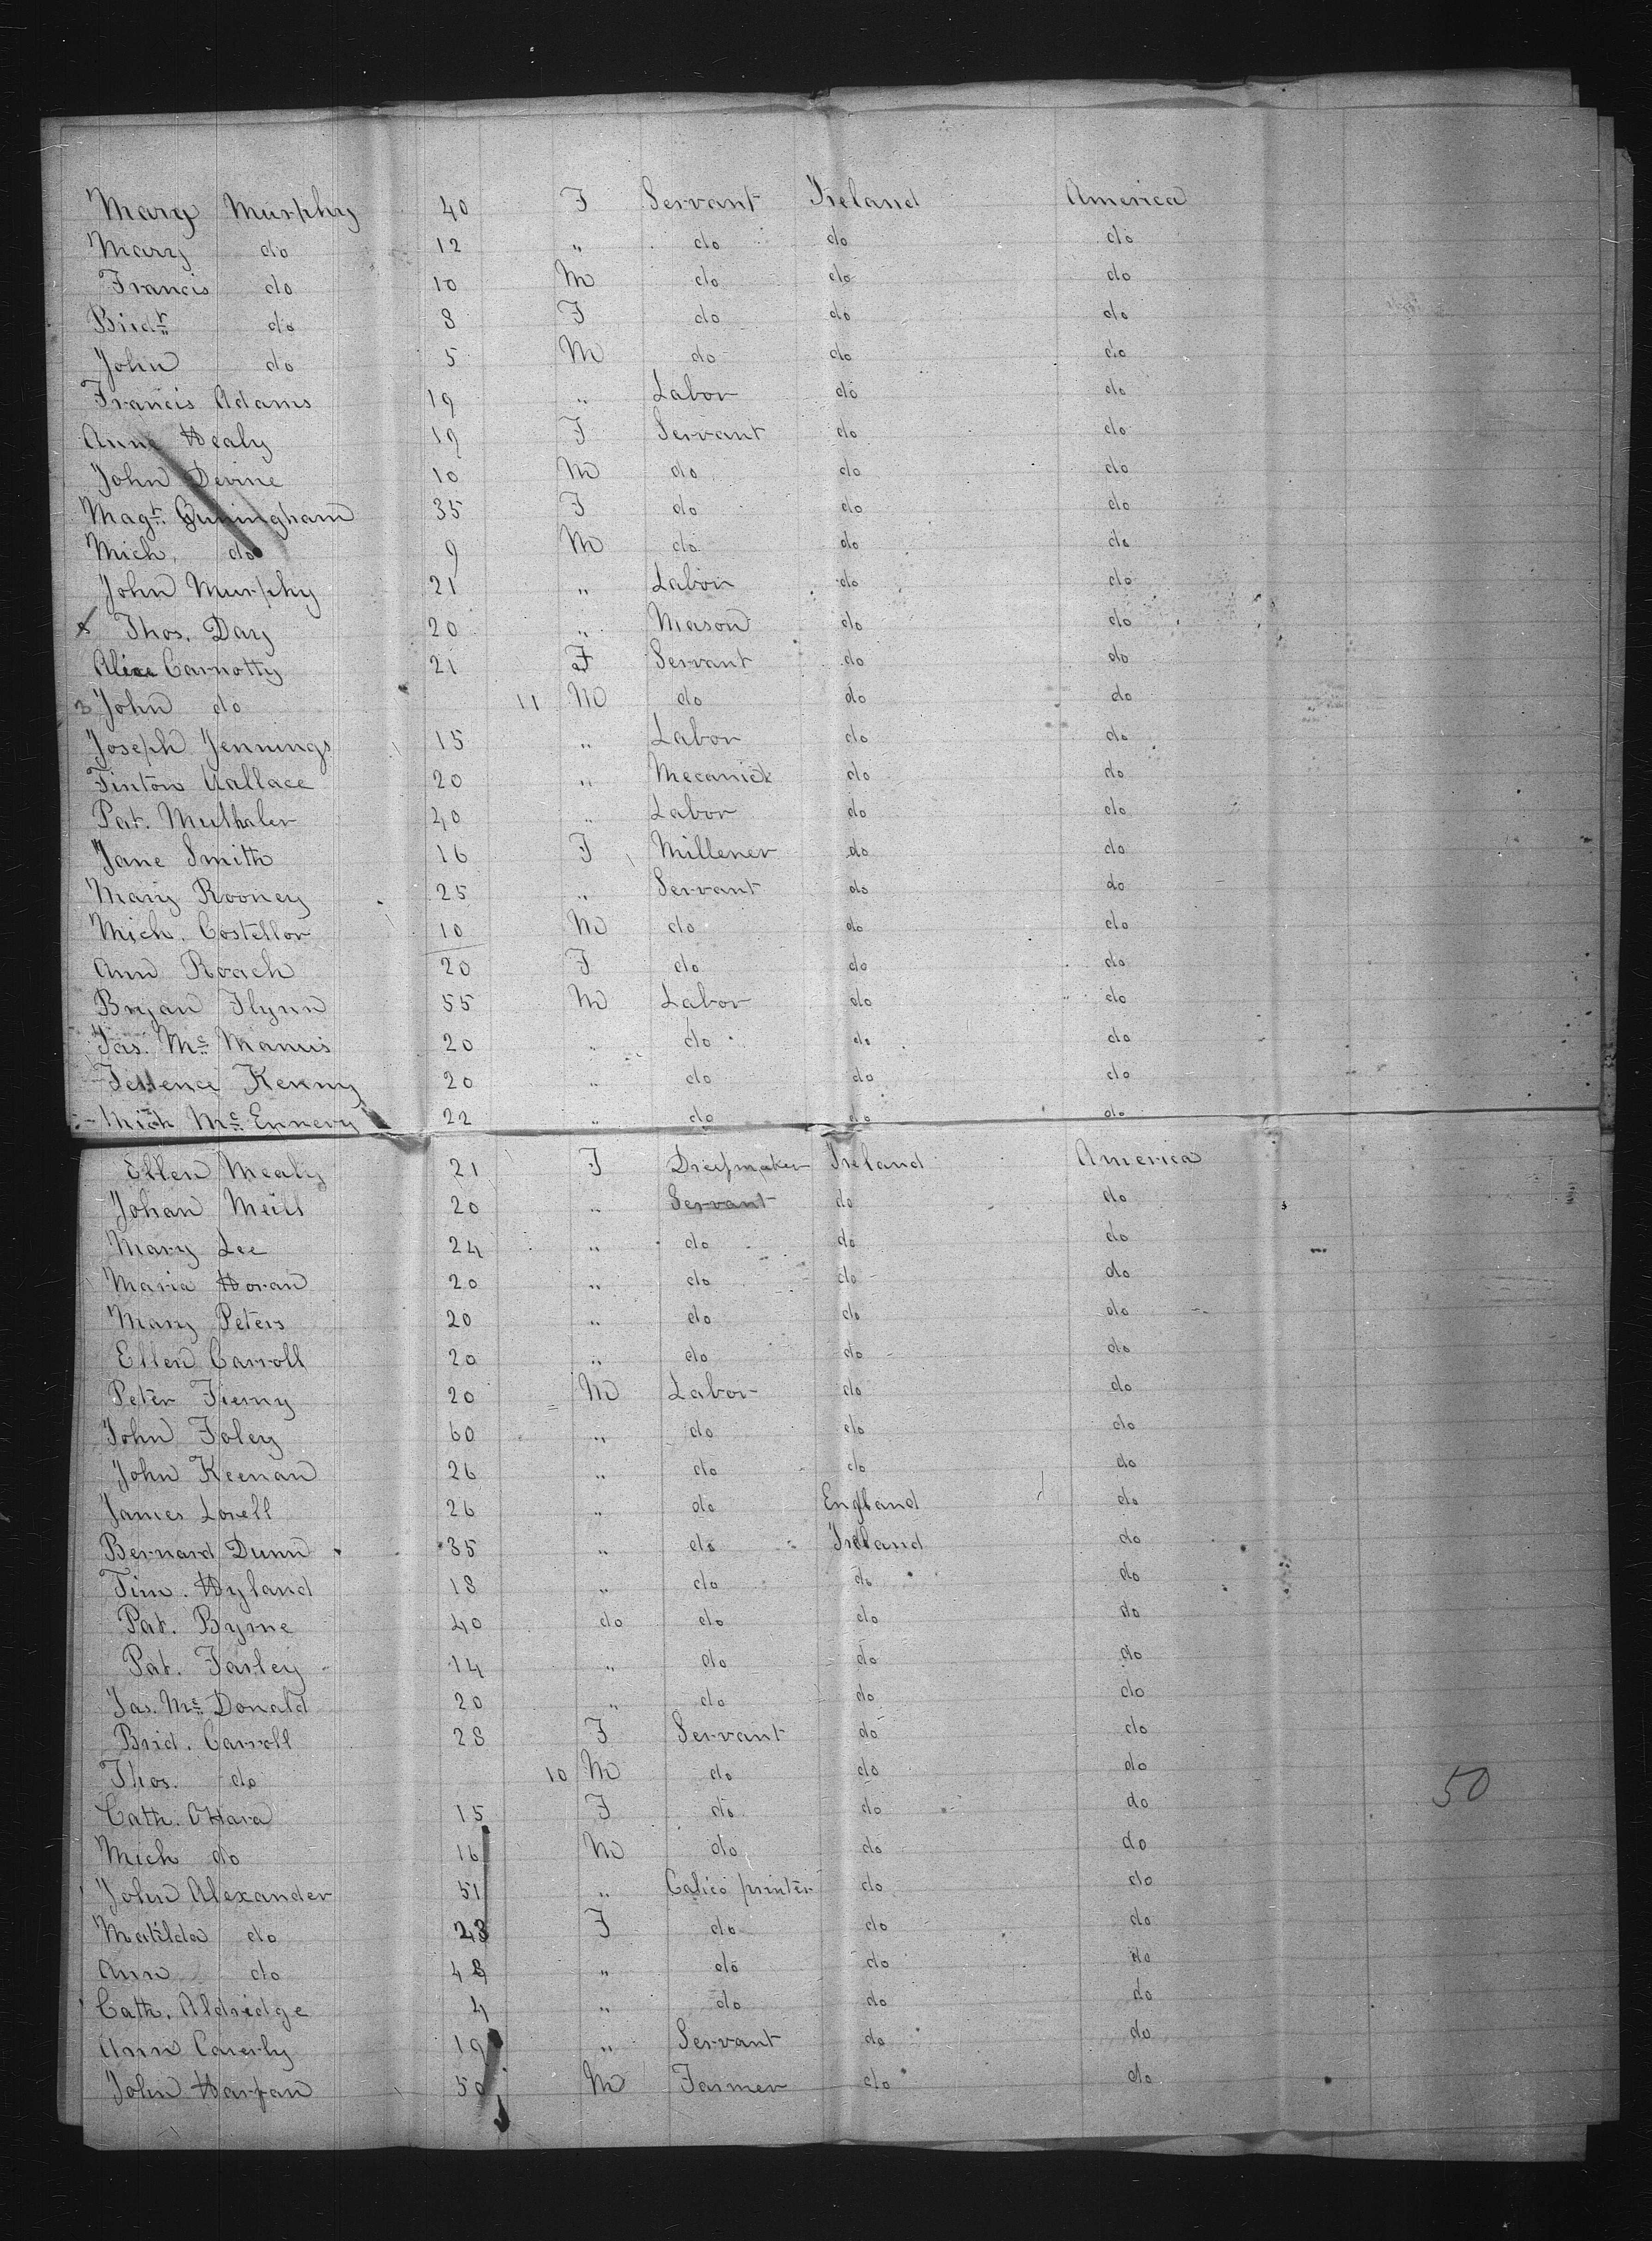 Mary Murphy 40 F Servant Ireland America
Mary do 12 " do do do
Francis do 10 M do do do
Bridt do 8 F do do do
John do 5 M do do do
Francis Adams 19 " Labor do do
Anne Healy 19 F Servant do do
John Devine 10 M do do do
Magt. Cuningham 35 F do do do
Mich. do 9 M do do do
John Murphy 21 " Labor do do
Thos. Day 20 " Mason do do
Alice Carnotty 21 F Servant do do
3 John do 11 M do do do
Joseph Jennings 15 " Labor do do
Finton Wallace 20 " Mecanick do do
Pat. Mulhaler 40 " Labor do do
Jane Smith 16 F Millener do do
Mary Rooney 25 " Servant do do
Mich. Costellor 10 M do do do
Ann Roach 20 F do do do
Bryan Flynn 55 M Labor do do
Jas. Mc Manus 20 " do do do
Terrence Kenny 20 " do do do
Mich Mc Ennery 22 " do do do
Ellen Mealy 21 F Dressmaker Ireland America
Johan Meill 20 " Servant do do
Mary Lee 24 " do do do
Maria Horan 20 " do do do
Mary Peters 20 " do do do
Ellen Carroll 20 " do do do
Peter Fierny 20 M Labor do do
John Foley 60 " do do do
John Keenan 26 " do do do
James Lovell 26 " do England do
Bernard Dunn 35 " do Ireland do
Tim. Hyland 18 " do do do
Pat. Byrne 40 do do do do
Pat. Farley 14 " do do do
Jas. Mc Donald 20 " do do do
Brid. Carroll 28 F Servant do do
Thos. do 10 M do do do
50
Cath. OHara 15 F do do do
Mich do 16 M do do do
John Alexander 51 " Calico printer do do
Matilda do 23 F do do do
Ann do 48 " do do do
Cath. Aldridge 4 " do do do
Ann Caverly 19 " Servant do do
John Harpan 50 M Farmer do do